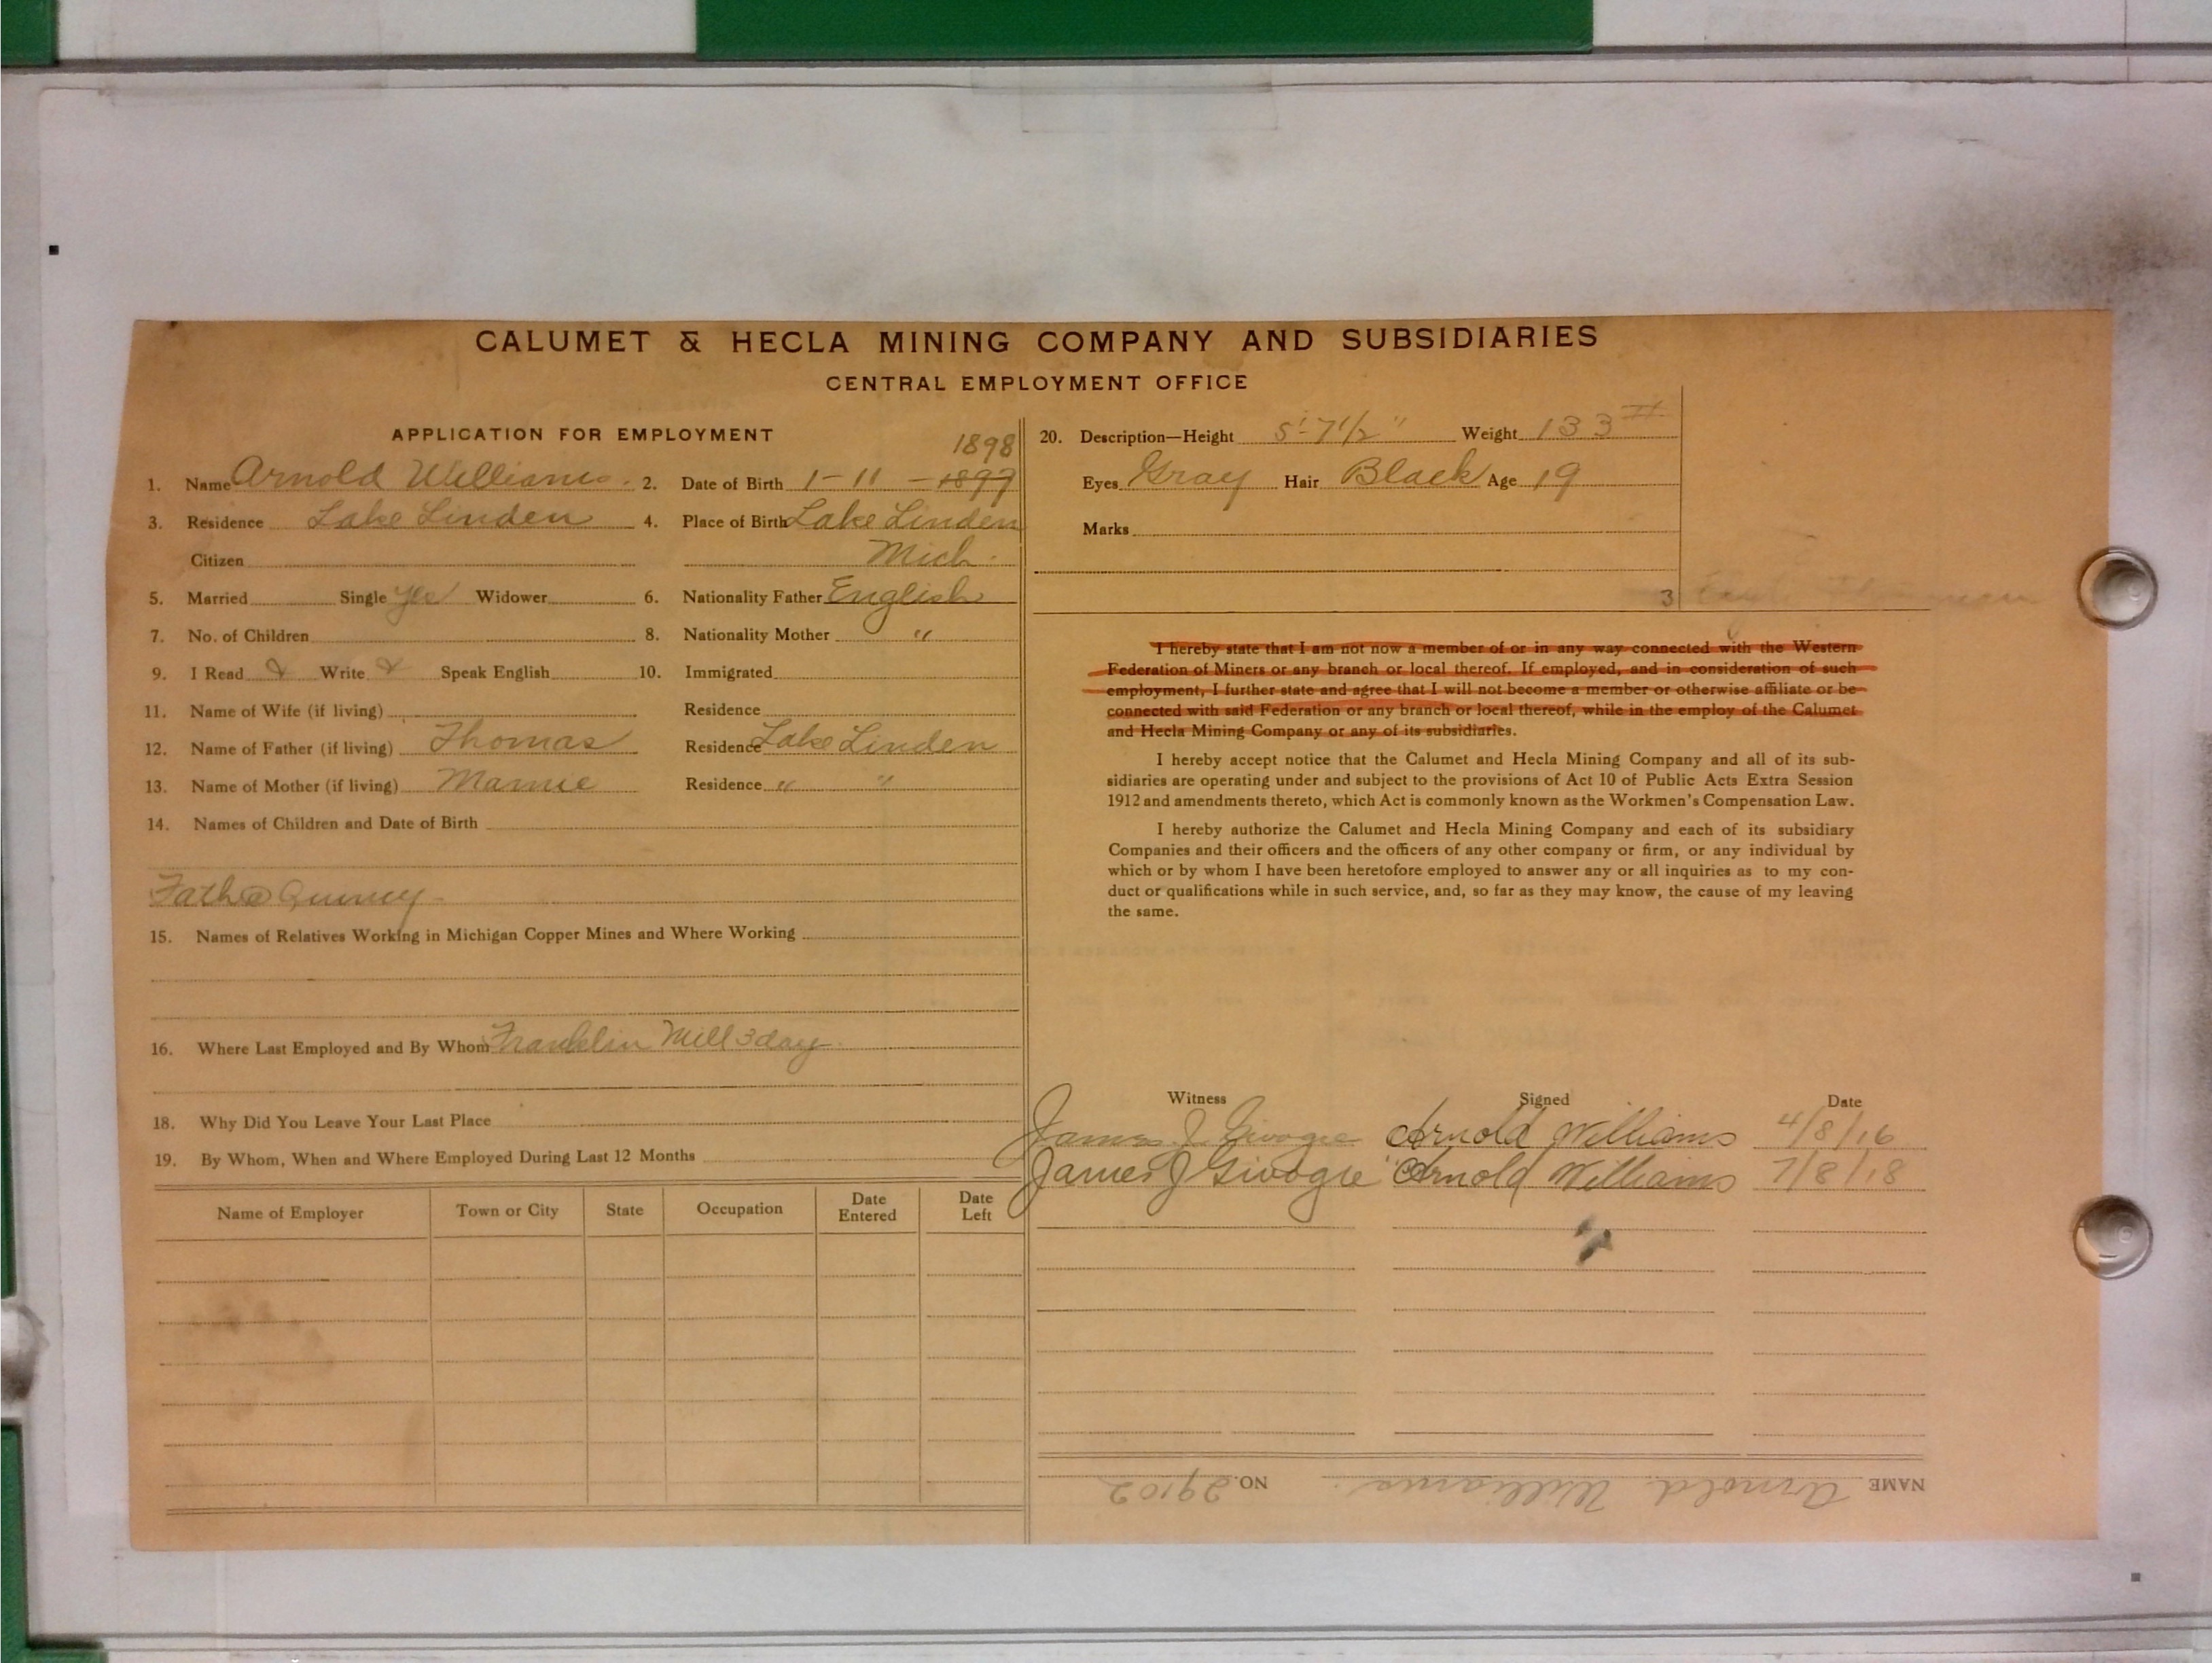 CALUMET & HECLA MINING COMPANY AND SUBSIDIARIES
CENTRAL EMPLOYMENT OFFICE
APPLICATION FOR EMPLOYMENT
1898
1. Name Arnold Williams. 2. Date of Birth 1-11-1897
3. Residence Lake Linden 4. Place of Birth Lake Linden
Citizen Mich.
5. Married Single yes Widower 6. Nationality Father English
7. No. of Children 8. Nationality Mother "
9. I Read Write Speak English 10. Immigrated
11. Name of Wife (if living) Residence
12. Name of Father (if living) Thomas Residence Lake Linden
13. Name of Mother (if living) Mamie Residence " "
14. Names of Children and Date of Birth
Father Quincy-
15. Names of Relatives Working in Michigan Copper Mines and Where Working
16. Where Last Employed and By Whom Franklin Mill 3 day
18. Why Did You Leave Your Last Place
19. By Whom, When and Where Employed During Last 12 Months
Name of Employer Town or City State Occupation Date Entered Date Left
20. Description—Height 5'-7 1/2" Weight 133 #
Eyes Gray Hair Black Age 19
Marks
3
I hereby state that I am not now a member of or in any way connected with the Western
Federation of Miners or any branch or local thereof. If employed, and in consideration of such
employment, I further state and agree that I will not become a member or otherwise affiliate or be
connected with said Federation or any branch or local thereof, while in the employ of the Calumet
and Hecla Mining Company or any of its subsidiaries.
I hereby accept notice that the Calumet and Hecla Mining Company and all of its sub-
sidiaries are operating under and subject to the provisions of Act 10 of Public Acts Extra Session
1912 and amendments thereto, which Act is commonly known as the Workmen's Compensation Law.
I hereby authorize the Calumet and Hecla Mining Company and each of its subsidiary
Companies and their officers and the officers of any other company or firm, or any individual by
which or by whom I have been heretofore employed to answer any or all inquiries as to my con-
duct or qualifications while in such service, and, so far as they may know, the cause of my leaving
the same.
Witness Signed Date
James J Givogre Arnold Williams 4/8/16
James J Givogre Arnold Williams 7/8/18
NAME Arnold Williams. NO. 29102